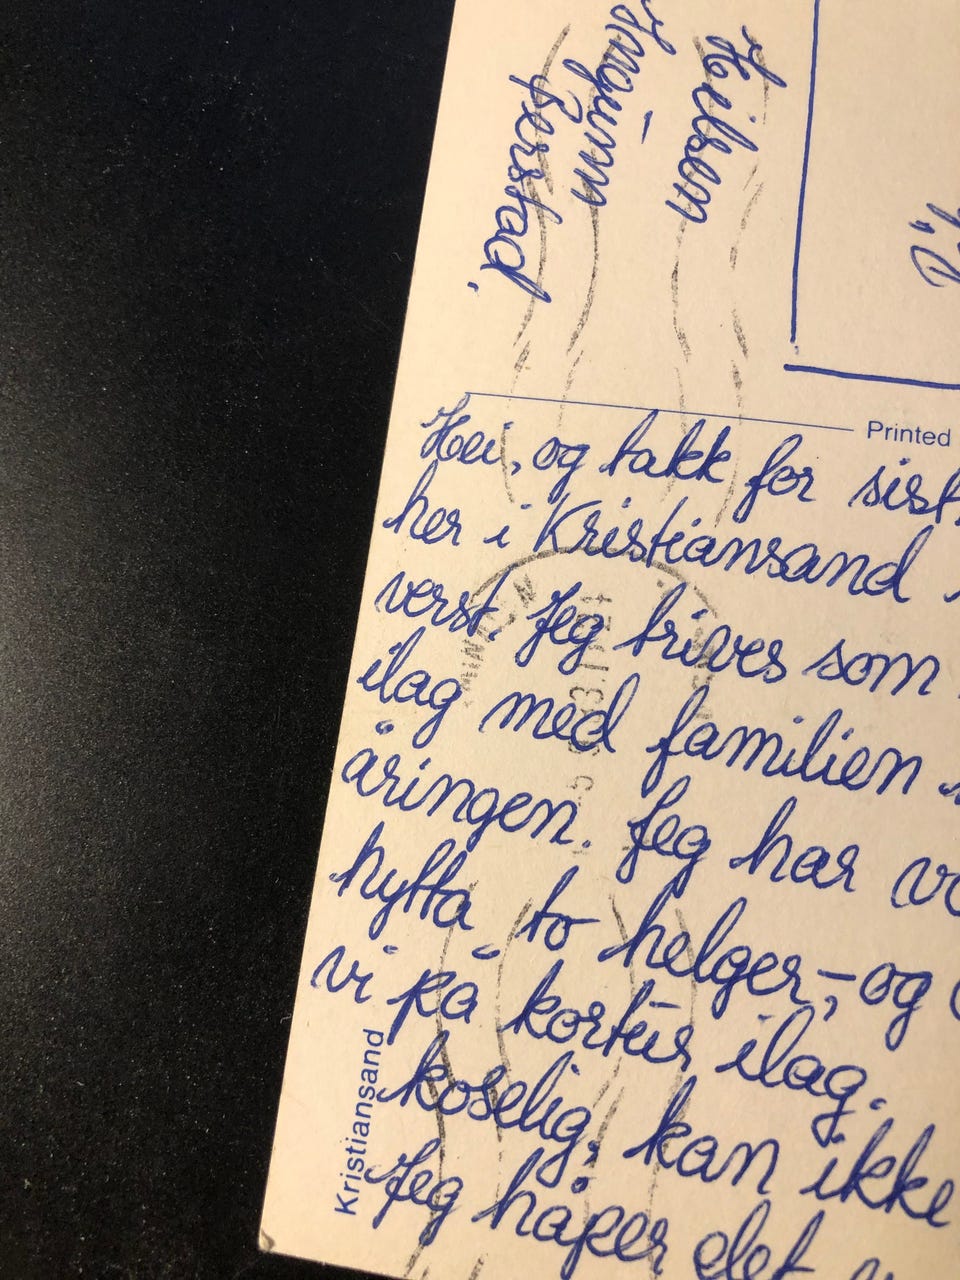 Hilsen
Ingunn
Berstad.
Printed
Hei, og takk for sist.
her i Kristiansand
verst. Jeg trives som
ilag med familien
åringen. Jeg har
hytta to helger,-og
vi på kortur ilag.
koselig, kan ikke
Jeg håper det
Kristiansand